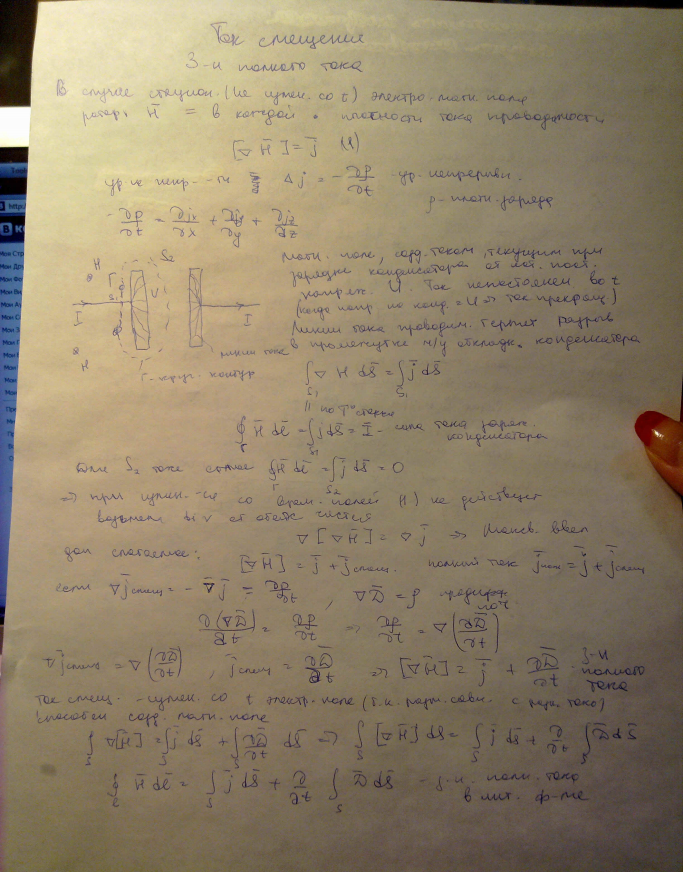 Ток смещение
З-н полного тока
В случае стацион. (не измен. со t) электро-магн. поле
ротор H̅ = в каждой • плотности тока проводимости
[∇ H̅] = j̅ (1)
ур-е непр-ти Δ j = -∂ρ/∂t - ур. непрерывн.
ρ - плотн. заряда
-∂ρ/∂t = ∂jx/∂x + ∂jy/∂y + ∂jz/∂z
Магн. поле, созд. током, текущим при
зарядке конденсатора от ист. пост.
напряж. U. Ток непостоянен во t
(когда напр. на конд. = U => ток прекращ.)
Линии тока проводим. терпят разрыв
в промежутке м/у обкладк. конденсатора
H Г S1 S2 U I I H
линии тока
Г - круг. контур
∫S1 ∇ H̅ dS̅ = ∫S1 j̅ dS̅
|| по Т° Стокса
∮Г H̅ dl̅ = ∫S1 j dS̅ = I̅ - сила тока заряж.
конденсатора
Для S2 тоже самое ∮Г H̅ dl̅ = ∫S2 j̅ dS̅ = 0
=> при измен-ся со врем. полей (1) не действует
возьмём div от обеих частей
∇ [∇ H̅] = ∇ j̅ => Максв. ввёл
доп слагаемое:
[∇ H̅] = j̅ + j̅смещ. полный ток j̅полн = j̅ + j̅смещ
если ∇ j̅смещ = - ∇̅ j̅ = ∂ρ/∂t, ∇ D̅ = ρ
∂(∇D̅)/∂t = ∂ρ/∂t => ∂ρ/∂t = ∇(∂D̅/∂t)
∇ j̅смещ = ∇(∂D̅/∂t), j̅смещ = ∂D̅/∂t => [∇H̅] = j̅ + ∂D̅/∂t З-н
полного
тока
Ток смещ. - измен. со t электр. поле
способен созд. магн. поле
∫S ∇[H̅] = ∫S j̅ dS̅ + ∫S ∂D̅/∂t dS̅ => ∫S [∇H̅] dS = ∫S j̅ dS̅ + ∂/∂t ∫S D̅ dS̅
∮l H̅ dl̅ = ∫S j̅ dS̅ + ∂/∂t ∫S D̅ dS̅ - з-н полн. тока
в инт. ф-ме